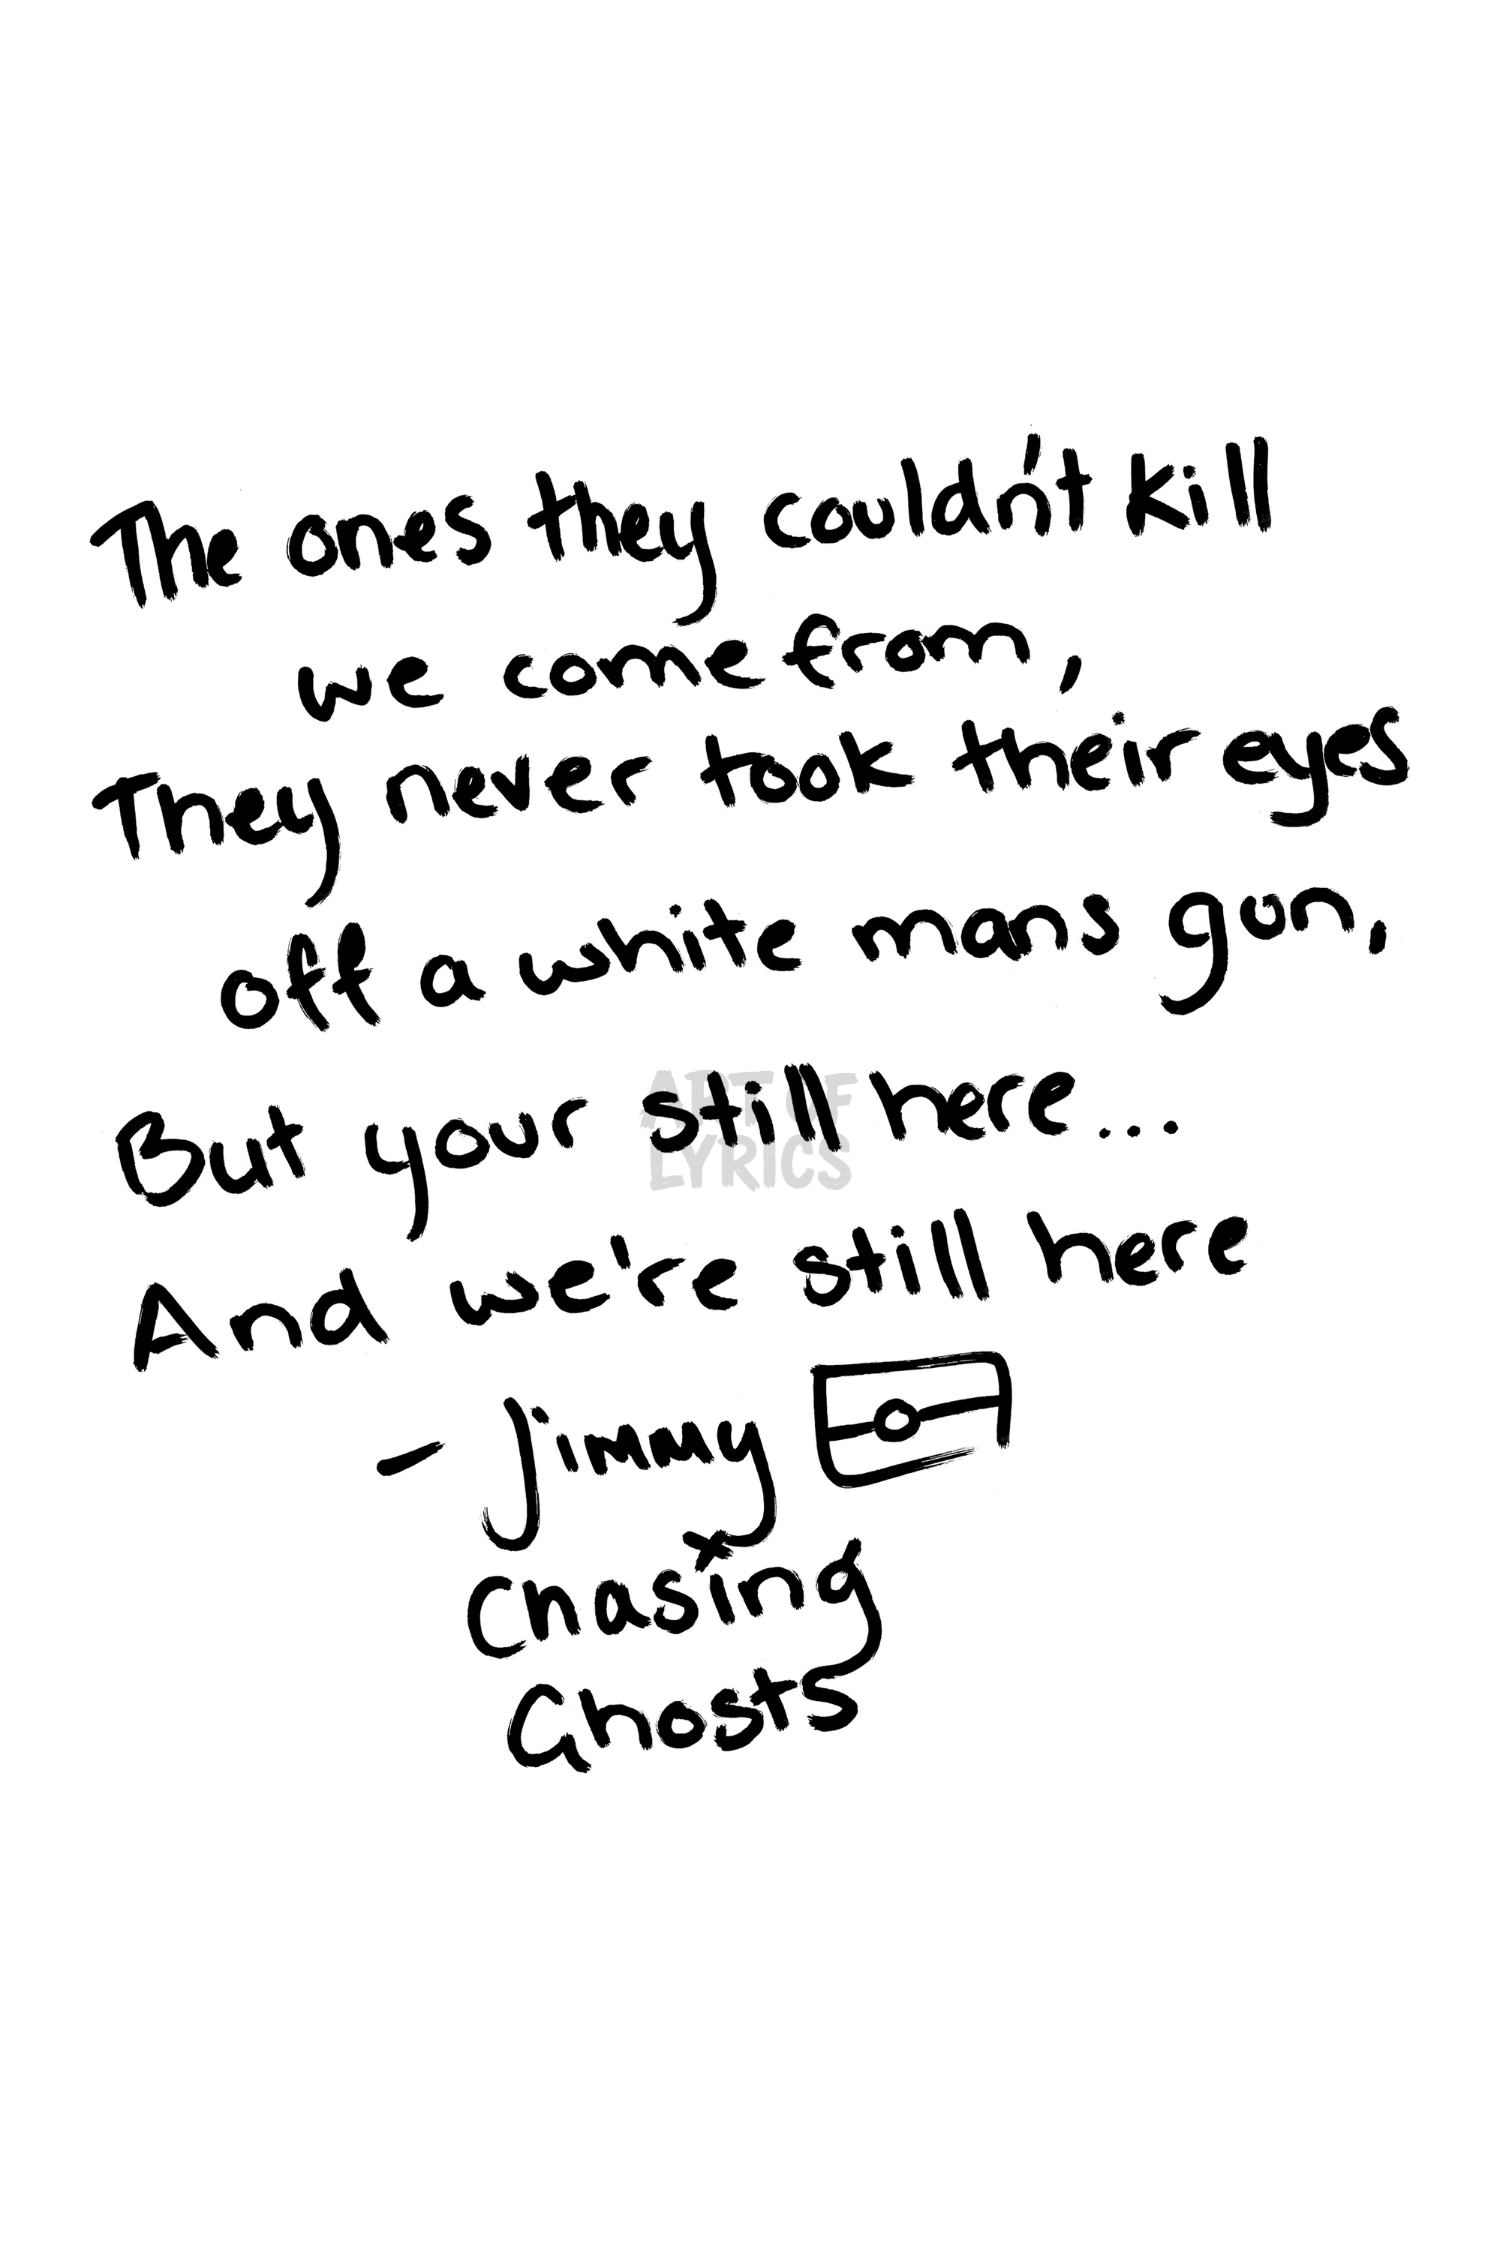 The ones they couldn't kill
we come from,
They never took their eyes
off a white mans gun,
But your still here...
ART OF
LYRICS
And we're still here
- Jimmy
Chasing
Ghosts